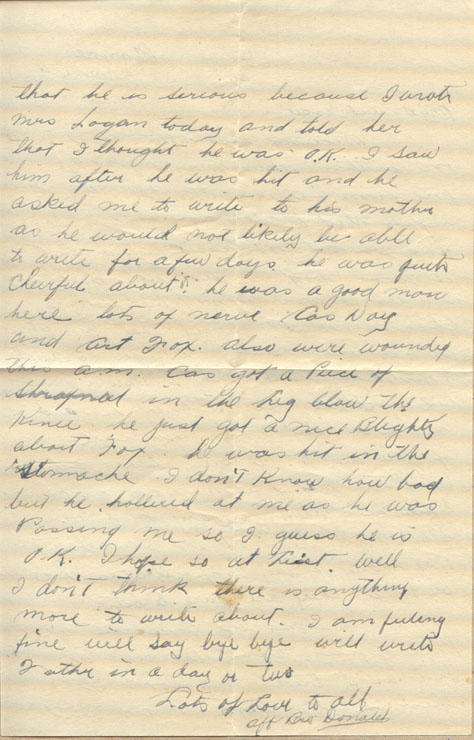 that he is serious because I wrote
Mrs Logan today and told her
that I thought he was O.K. I saw
him after he was hit and he
asked me to write to his mother
as he would not likely be able
to write for a few days. he was quite
Cheerful about it. he was a good man
here lots of nerve Cas Day
and Art Fox. also were wounded
this a.m. Cas got a Piece of
Shrapnel in the Leg blow the
Knee he just got a nice Blighty
about Fox he was hit in the
stomache I don't Know how bad
but he hollered at me as he was
Passing me so I guess he is
O.K. I hope so at least. well
I don't think there is anything
more to write about. I am feeling
fine will say bye bye will write
Father in a day or two
Lots of Love to all
aff Bro Donald